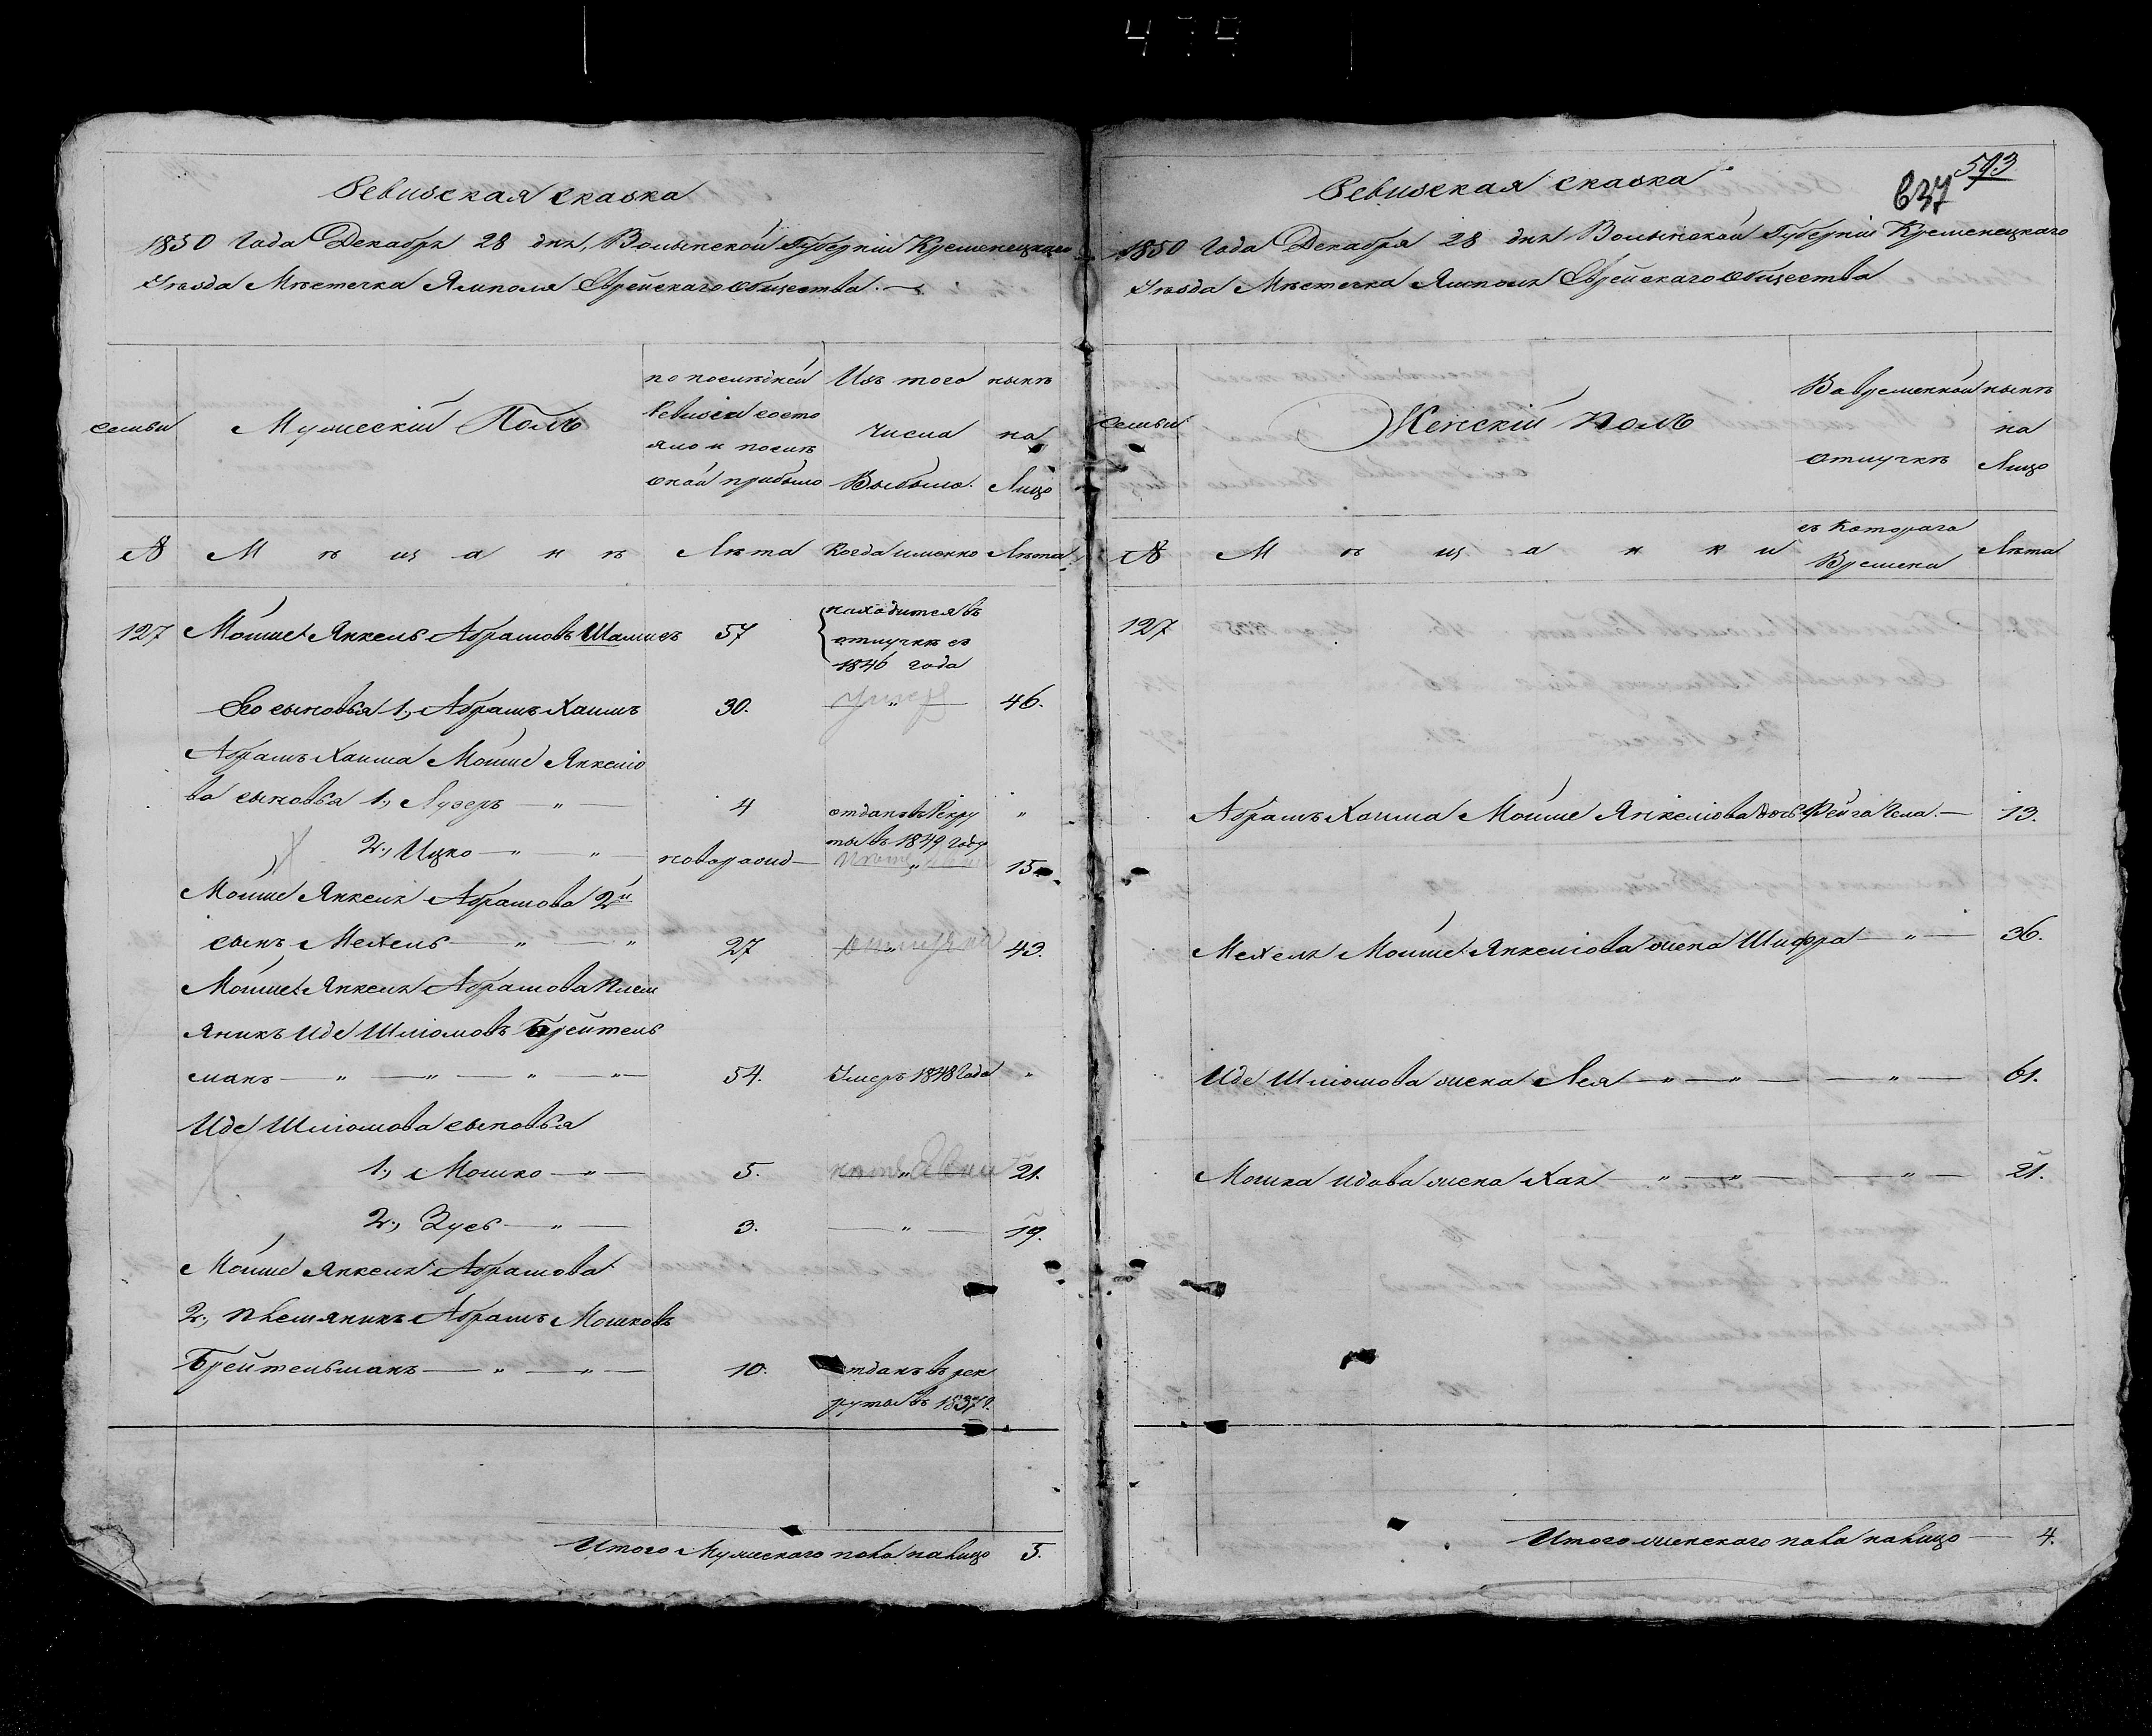 479
Ревизская сказка
1850 Года Декабря 28 дня, Волынской Губернiи Кременецкаго
Уезда Мѣстечка Ямполя Еврейскаго общества.
семьи
Мужескiй Полъ
по послѣдней
Ревизiи состо
яло и послѣ
оной прибыло
Изъ того
числа
Выбыло.
нынѣ
на
Лицо
№
М ѣ щ а н ѣ
Лѣта
Когда имѣнно
Лѣта
127 Мойше Янкель Абрамовъ Шамисъ 57 находится въ
отлучкѣ съ
1846 года
Его сыновья 1., Абрамъ Хаимъ 30. — " — 46.
Абрамъ Хаима Мойше Янкелiо
ва сыновья 1., Лузеръ — " — 4 отданъ въ Рекру "
ты въ 1849 году
2., Ицко — " — " — новорожд — " — 15
Мойше Янкеля Абрамова 2й
сынъ Мехель — " — " 27 — " — 43.
Мойше Янкеля Абрамова Плем
яникъ Иде Шлiомовъ Брейтель
манъ — " — " — " — " — 54. Умеръ 1848 Года "
Иде Шлiомова сыновья
1., Мошко — " — 5. — " — 21.
2., Зусь — " — 3. — " — 19.
Мойше Янкеля Абрамова
2., племяникъ Абрамъ Мошковъ
Брейтельманъ — " — " — 10. отданъ въ рек
руты въ 1837 г.
Итого Мужескаго пола налицо 5.
593
637
Ревизская сказка
1850 Года Декабря 28 дня Волынской Губернiи Кременецкаго
Уѣзда Мѣстечка Ямполя Еврейскаго общества
семьи
Женскiй полъ
Во временной
отлучкѣ
нынѣ
на
Лицо
№
М ѣ щ а н к и
съ Котораго
Времени
Лѣта
127
Абрамъ Хаима Мойше Янкелiова дочь Фейга — 13.
Мехеля Мойше Янкелiова жена Шифра — " — 36.
Иде Шлiомова жена Лея — " — " — " — 61.
Мошка Идова жена Хая — " — " — " — 21.
Итого женскаго пола налицо — 4.